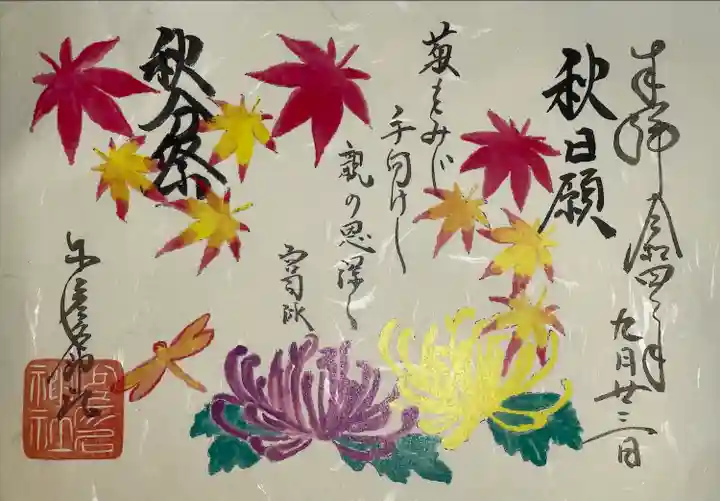 奉拝 令和四年
九月廿三日
秋日願
菊もみじ
手向けし
親の恩深く
宮司詠
秋分祭
神社